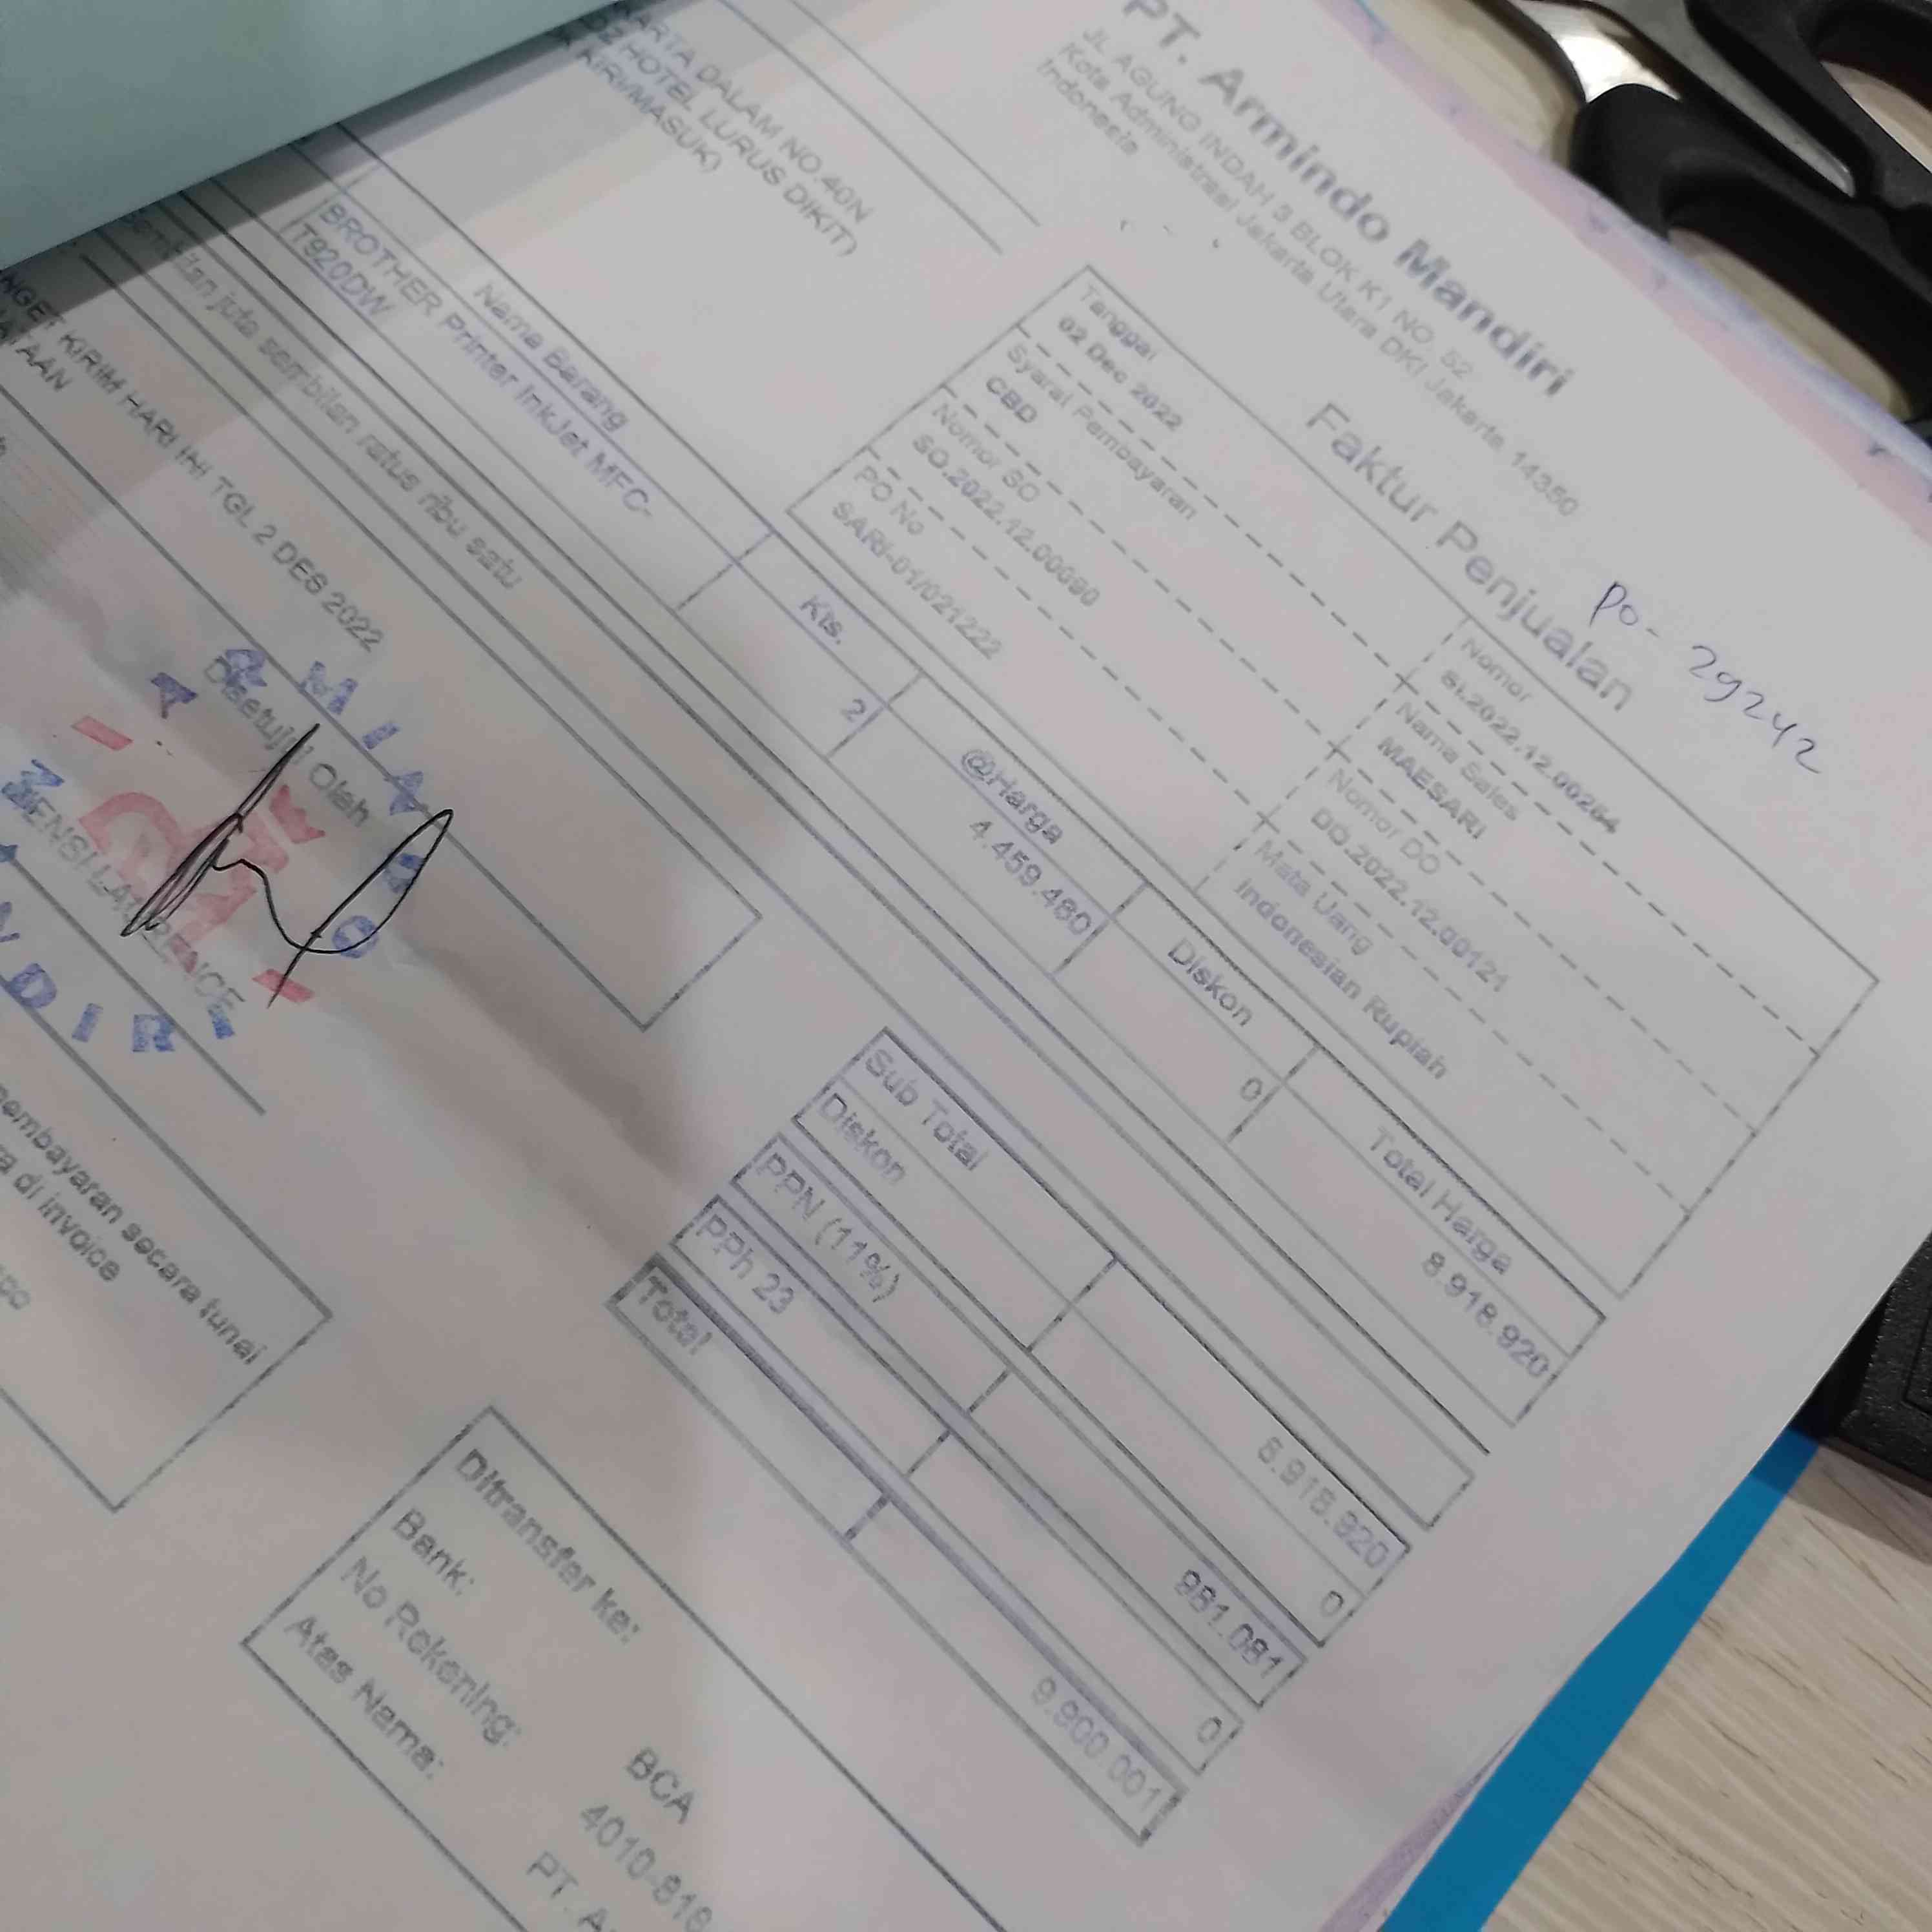 PT. Armindo Mandiri
JL AGUNG INDAH 3 BLOK K1 NO. 52
Kota Administrasi Jakarta Utara DKI Jakarta 14350
Indonesia
Faktur Penjualan
PO-29242
Tanggal
02 Dec 2022
Nomor
SI.2022.12.00264
Syarat Pembayaran
CBD
Nama Sales
MAESARI
Nomor SO
SO.2022.12.00090
Nomor DO
DO.2022.12.00121
PO No
SARI-01/021222
Mata Uang
Indonesian Rupiah
DALAM NO.40N
HOTEL LURUS DIKIT)
KIRI/MASUK)
Nama Barang Kts. @Harga Diskon Total Harga
BROTHER Printer InkJet MFC- 2 4.459.460 0 8.918.920
T920DW
juta sembilan ratus ribu satu
KIRIM HARI INI TGL 2 DES 2022
Sub Total 8.918.920
Diskon 0
PPN (11%) 981.081
PPh 23 0
Total 9.900.001
Disetujui Oleh
pembayaran secara tunai
di invoice
Ditransfer ke:
Bank: BCA
No Rekening: 4010-816
Atas Nama: PT.